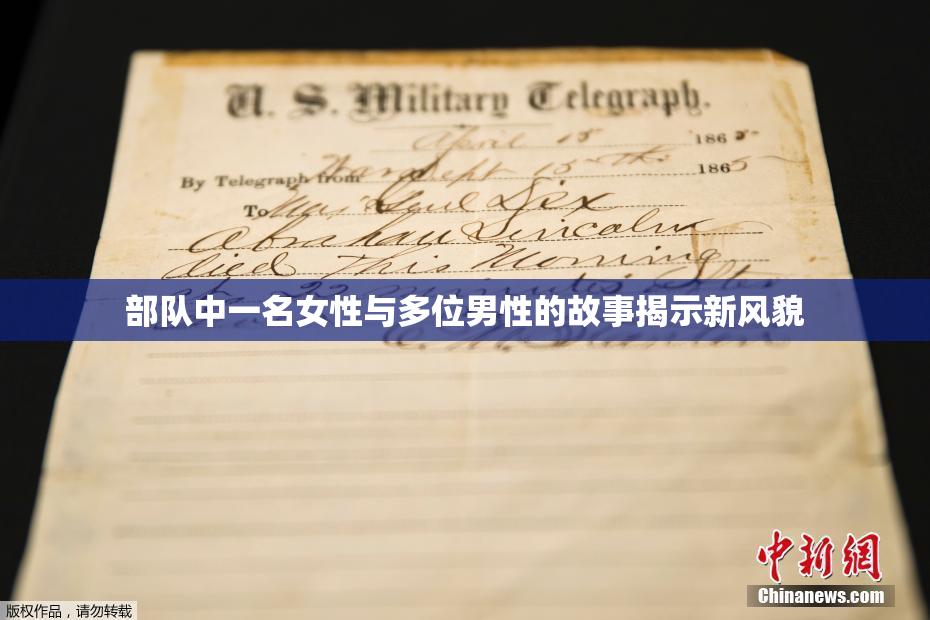 U. S. Military Telegraph.
April 15 1865
By Telegraph from War Dept 15th 1865
To Maj Genl Dix
Abraham Lincoln
died This Morning
22 minutes after
部队中一名女性与多位男性的故事揭示新风貌
E. M. Stanton
中新網
Chinanews.com
版权作品，请勿转载